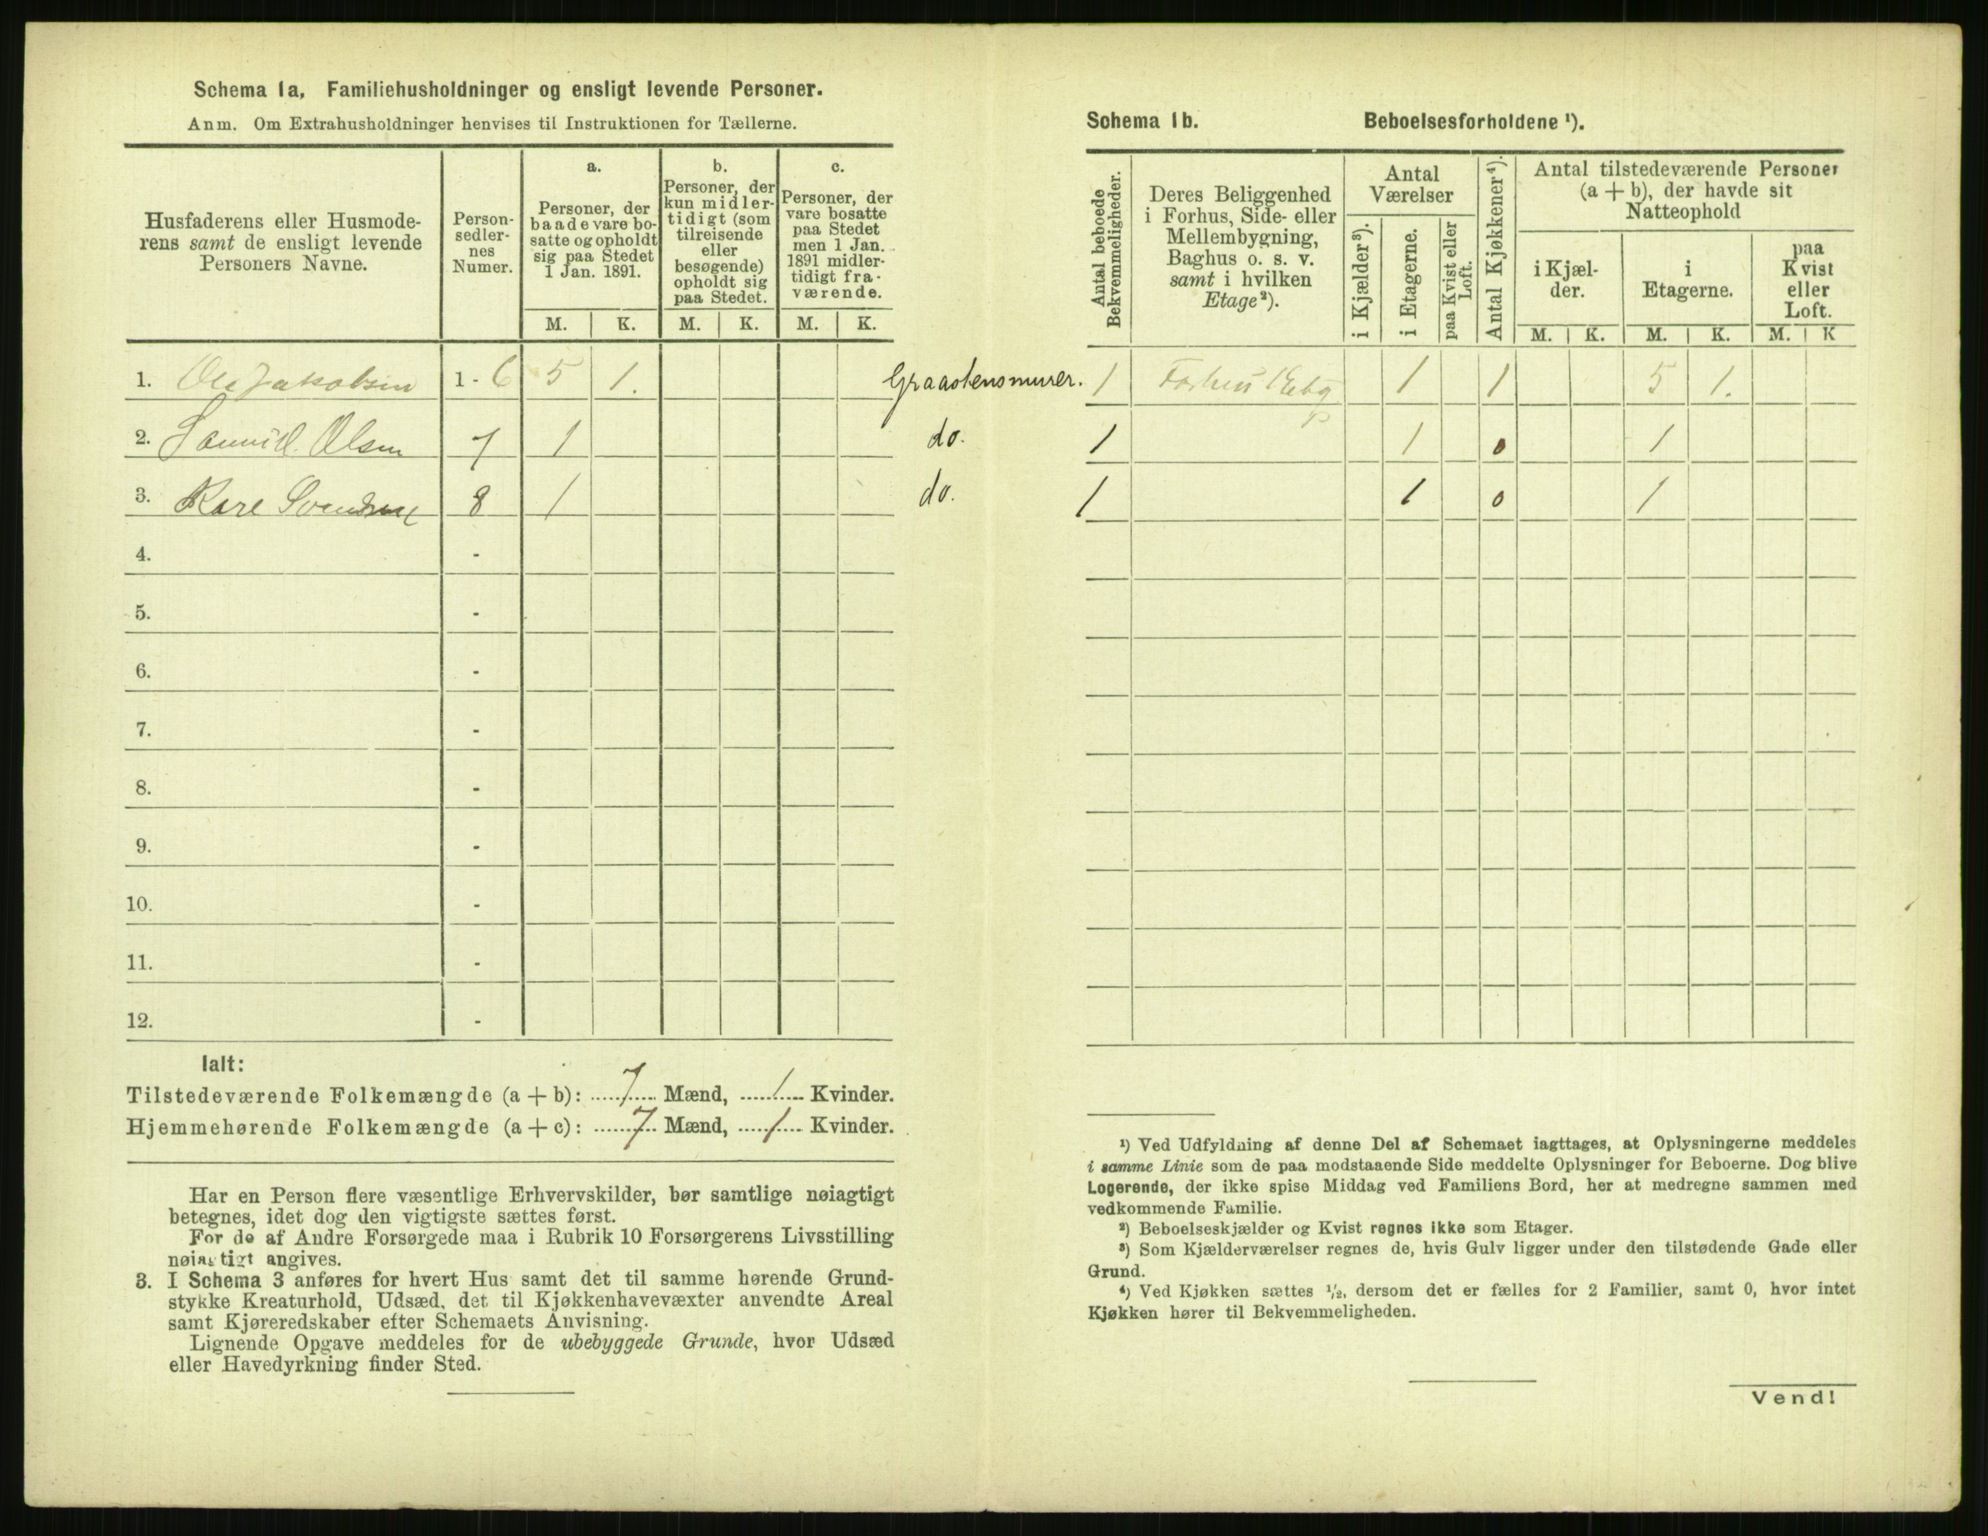 Schema 1a. Familiehusholdninger og ensligt levende Personer.
Anm. Om Extrahusholdninger henvises til Instruktionen for Tællerne.
Husfaderens eller Husmode-
rens samt de ensligt levende
Personers Navne.
Person-
sedler-
nes
Numer.
a.
Personer, der
baade vare bo-
satte og opholdt
sig paa Stedet
1 Jan. 1891.
b.
Personer, der
kun midler-
tidigt (som
tilreisende
eller
besøgende)
opholdt sig
paa Stedet.
c.
Personer, der
vare bosatte
paa Stedet
men 1 Jan.
1891 midler-
tidigt fra-
værende.
M. K. M. K. M. K.
1. Ole Jakobsen 1 - 6 5 1. Graastensmurer.
2. Samuel Olsen 7 1 do.
3. Kare Svendsen 8 1 do.
4. -
5. -
6. -
7. -
8. -
9. -
10. -
11. -
12. -
Ialt:
Tilstedeværende Folkemængde (a + b): 7 Mænd, 1 Kvinder.
Hjemmehørende Folkemængde (a + c): 7 Mænd, 1 Kvinder.
Har en Person flere væsentlige Erhvervskilder, bør samtlige nøiagtigt
betegnes, idet dog den vigtigste sættes først.
For de af Andre Forsørgede maa i Rubrik 10 Forsørgerens Livsstilling
nøiagtigt angives.
3. I Schema 3 anføres for hvert Hus samt det til samme hørende Grund-
stykke Kreaturhold, Udsæd, det til Kjøkkenhavevæxter anvendte Areal
samt Kjøreredskaber efter Schemaets Anvisning.
Lignende Opgave meddeles for de ubebyggede Grunde, hvor Udsæd
eller Havedyrkning finder Sted.
Schema 1b. Beboelsesforholdene ¹).
Antal beboede
Bekvemmeligheder.
Deres Beliggenhed
i Forhus, Side- eller
Mellembygning,
Baghus o. s. v.
samt i hvilken
Etage²).
Antal
Værelser
i Kjælder³).
i Etagerne.
paa Kvist eller
Loft.
Antal Kjøkkener⁴).
Antal tilstedeværende Personer
(a + b), der havde sit
Natteophold
i Kjæl-
der.
i
Etagerne.
paa
Kvist
eller
Loft.
M. K. M. K. M. K
1 Forhus 1 Etg 1 1 5 1.
1 1 0 1
1 1 0 1
¹) Ved Udfyldning af denne Del af Schemaet iagttages, at Oplysningerne meddeles
i samme Linie som de paa modstaaende Side meddelte Oplysninger for Beboerne. Dog blive
Logerende, der ikke spise Middag ved Familiens Bord, her at medregne sammen med
vedkommende Familie.
²) Beboelseskjælder og Kvist regnes ikke som Etager.
³) Som Kjælderværelser regnes de, hvis Gulv ligger under den tilstødende Gade eller
Grund.
⁴) Ved Kjøkken sættes ½, dersom det er fælles for 2 Familier, samt 0, hvor intet
Kjøkken hører til Bekvemmeligheden.
Vend!